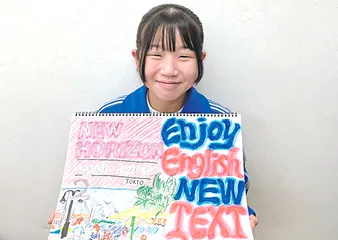 NEW
HORIZON
TOKYO
Enjoy
English
NEW
TEXT